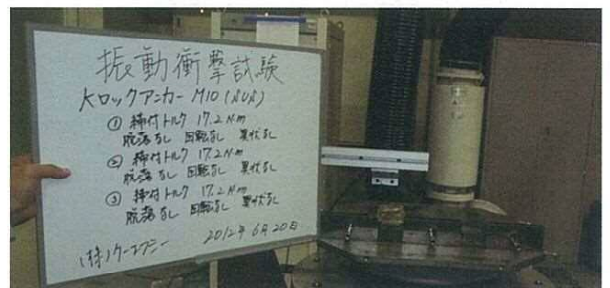 振動衝撃試験
Kロックアンカー M10 (SUS)
① 締付トルク 17.2N・m
脱落なし 回転なし 異状なし
② 締付トルク 17.2N・m
脱落なし 回転なし 異状なし
③ 締付トルク 17.2N・m
脱落なし 回転なし 異状なし
(株)ケーエフシー 2012年6月20日